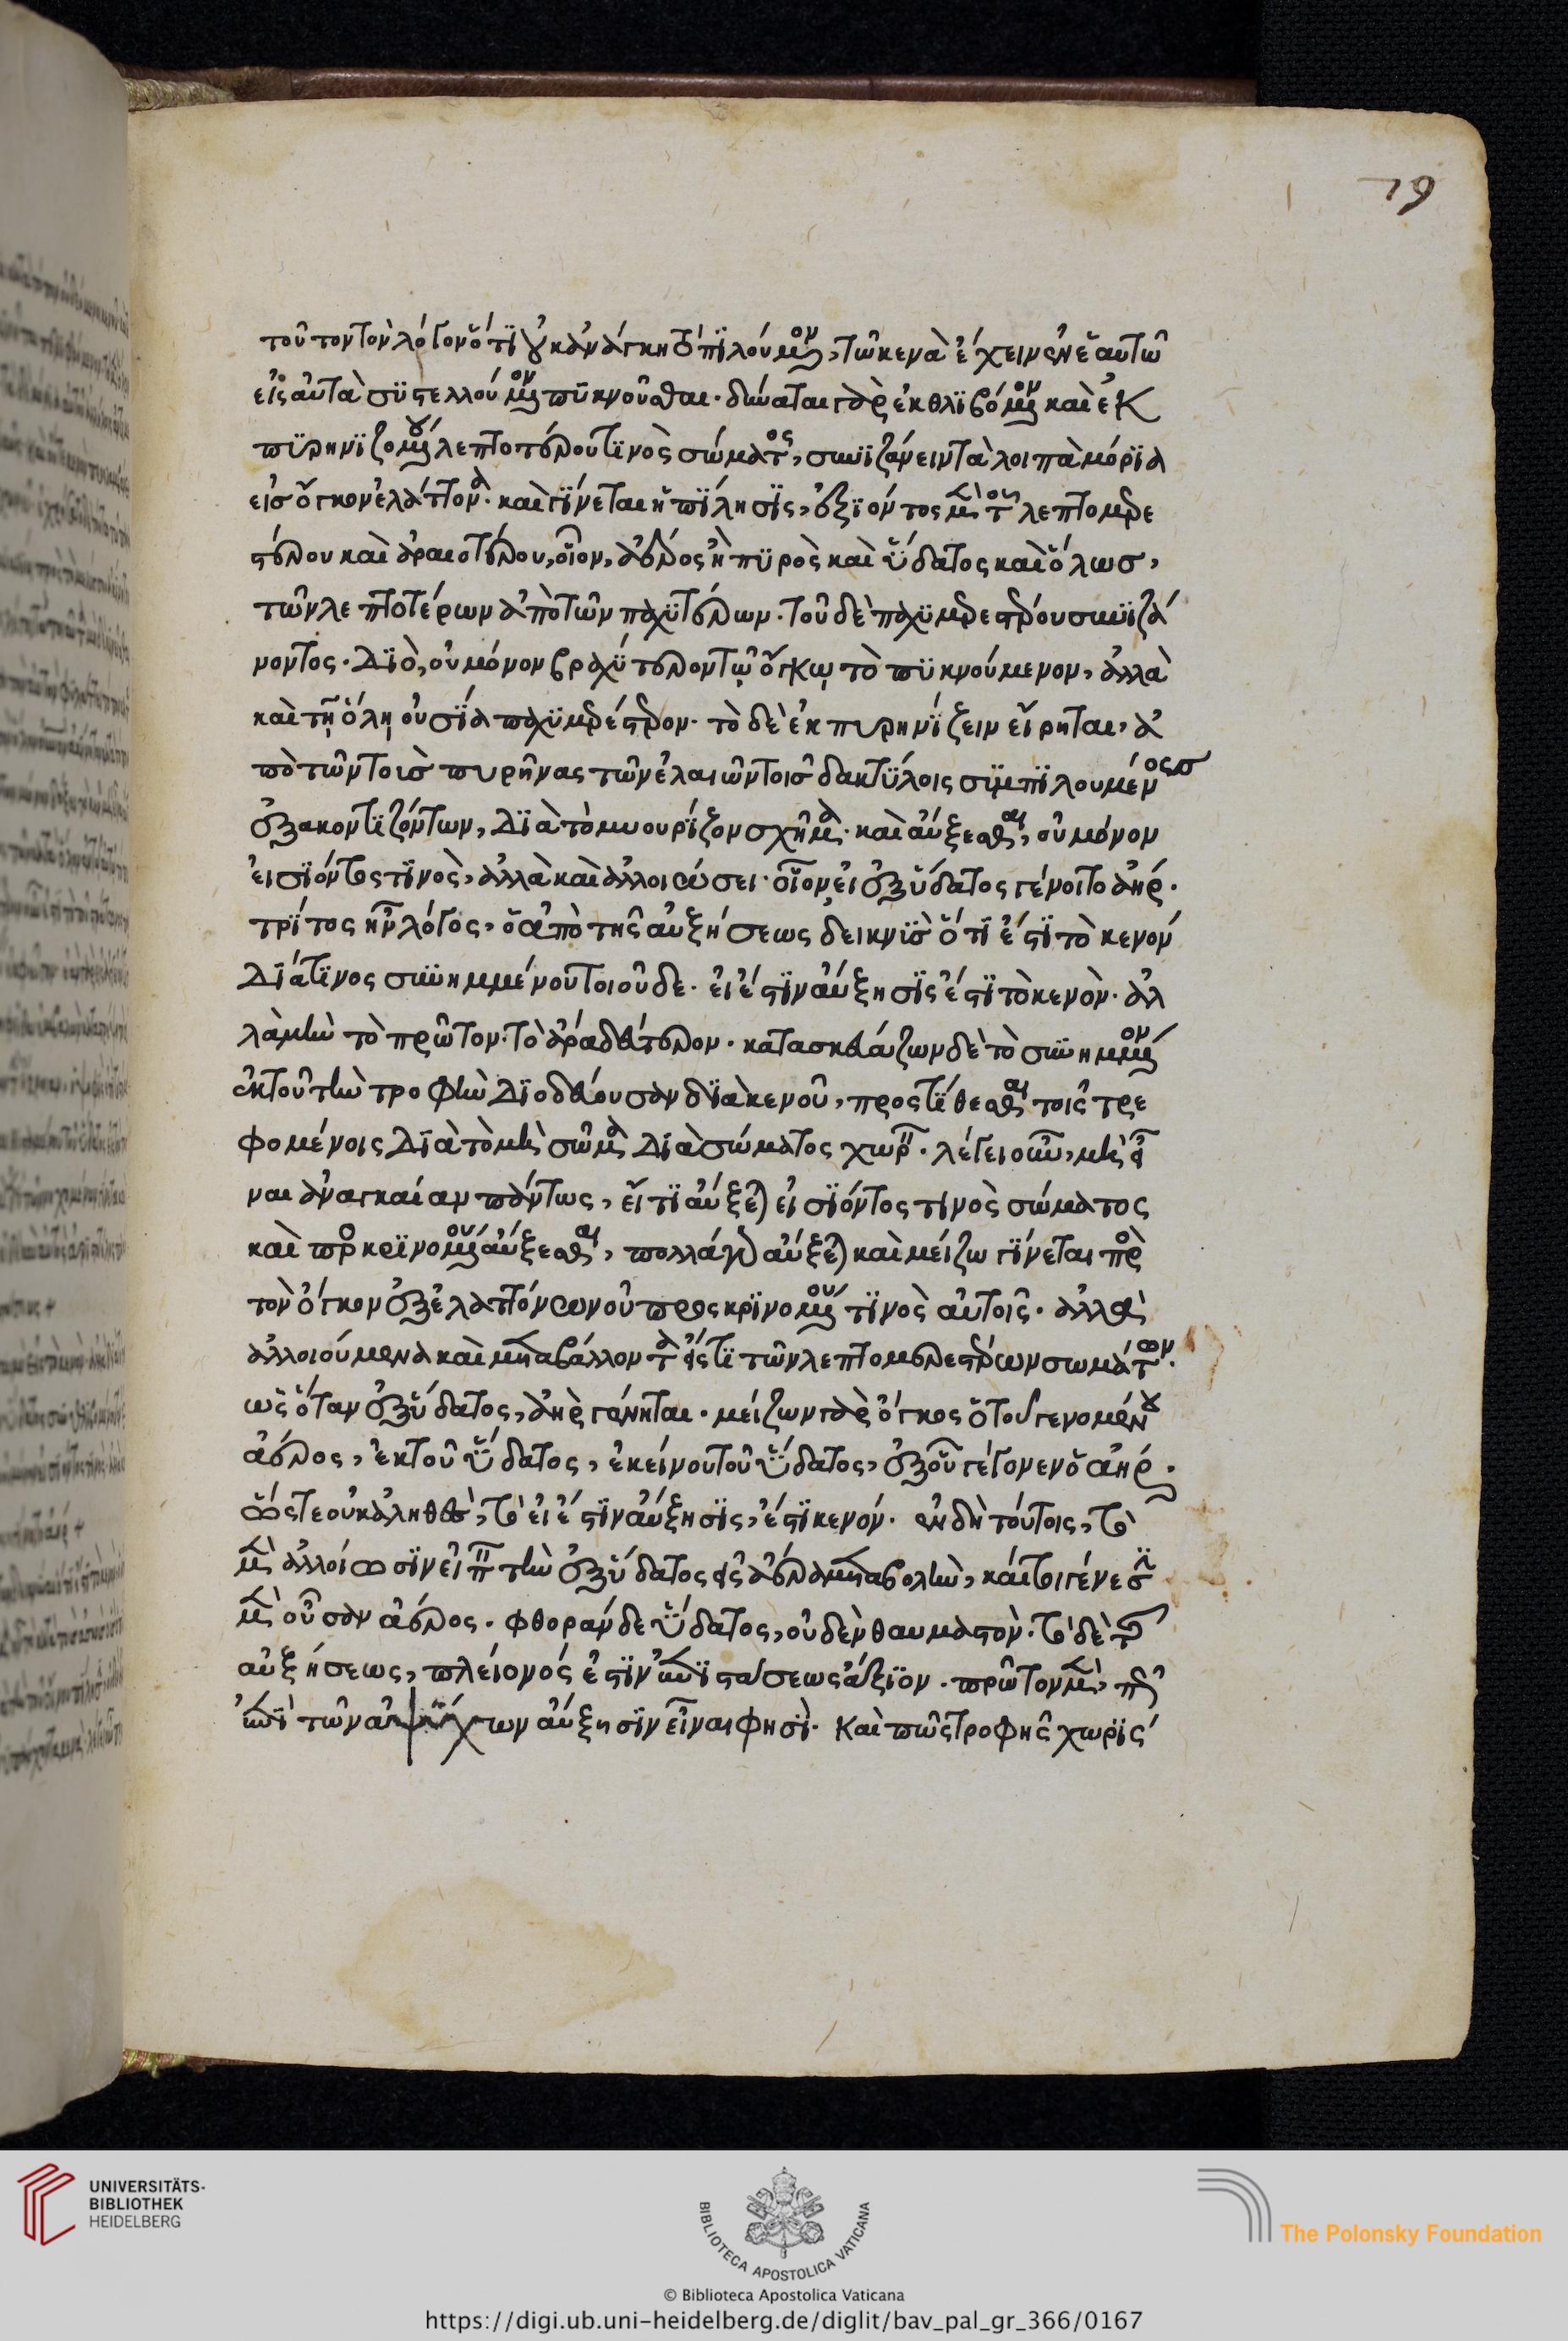 79
τοῦτον τὸν λόγον ὅτι οὐκ ἀνάγκη τὸ πιλούμενον, τῶ κενὰ ἔχειν ἐν ἑαυτῶ
εἰς αὐτὰ συστελλούμενον πυκνοῦσθαι· δύναται γὰρ ἐκθλιβόμενον καὶ ἐκ
πυρηνιζομένου λεπτοτέρου τινὸς σώματος, συνιζάνειν τὰ λοιπὰ μόρια
εἰσ ὄγκον ἐλάττονα· καὶ γίνεται ἡ πίλησις, ἐξιόντος μὲν τοῦ λεπτομερε
στέρου καὶ ἀραιοτέρου, οἷον, ἀέρος ἢ πυρὸς καὶ ὕδατος καὶ ὅλωσ,
τῶν λεπτοτέρων ἀπὸ τῶν παχυτέρων· τοῦ δὲ παχυμερεστέρου συνιζά
νοντος· Διὸ, οὐ μόνον βραχύτερον τῷ ὄγκῳ τὸ πυκνούμενον, ἀλλὰ
καὶ τῇ ὅλῃ οὐσία παχυμερέστερον· τὸ δὲ ἐκπυρηνίζειν εἴρηται, ἀ
πὸ τῶν τοισ πυρῆνας τῶν ἐλαιῶν τοισ δακτύλοις συμπιλουμένοσσ
ἐξακοντιζόντων, Διὰ τὸ μυουρίζον σχῆμα· καὶ αὔξεσθαι, οὐ μόνον
εἰσιόντος τινὸς, ἀλλὰ καὶ ἀλλοιώσει· οἷον εἰ ἐξ ὕδατος γένοιτο ἀήρ·
τρίτος ἦν λόγος, ὁ ἀπὸ τῆς αὐξήσεως δεικνὺσ ὅτι ἔστι τὸ κενόν
Διά τινος συνημμένου τοιοῦδε· εἰ ἔστιν αὔξησις ἔστι τὸ κενὸν· ἀλ
λὰ μὴν τὸ πρῶτον· τὸ ἄρα δεύτερον· κατασκευάζων δὲ τὸ συνημμένον
ἐκ τοῦ τὴν τροφὴν Διοδεύουσαν διὰ κενοῦ, προστίθεσθαι τοῖς τρε
φομένοις Διὰ τὸ μὴ σῶμα Διὰ σώματος χωρεῖν· λέγει οὖν, μὴ εἶ
ναι ἀναγκαίαν πάντως, εἴ τι αὔξεται εἰσιόντος τινὸς σώματος
καὶ προσκρινομένου αὔξεσθαι, πολλὰ γὰρ αὔξεται καὶ μείζω γίνεται πρὸς
τὸν ὄγκον ἐξ ἐλαττόνων οὐ προσκρινομένου τινὸς αὐτοῖς· ἀλλὰ
ἀλλοιούμενα καὶ μεταβάλλοντα εἴς τι τῶν λεπτομερεστέρων σωμάτων·
ὡς ὅταν ἐξ ὕδατος, ἀὴρ γένηται· μείζων γὰρ ὄγκος ὁ τοῦ γενομένου
ἀέρος, ἐκ τοῦ ὕδατος, ἐκείνου τοῦ ὕδατος, ἐξ οὗ γέγονεν ὁ ἀήρ·
ὥστε οὐκ ἀληθὲς, τὸ εἰ ἔστιν αὔξησις, ἔστι κενόν· ἐν δὴ τούτοις, τὸ
μὲν ἀλλοίωσιν εἰπεῖν τὴν ἐξ ὕδατος εἰς ἀέρα μεταβολὴν, καίτοι γένεσιν
μὲν οὖσαν ἀέρος· φθορὰν δὲ ὕδατος, οὐδὲν θαυμαστόν· τὸ δὲ τῆς
αὐξήσεως, πλείονός ἐστιν ἐπιστάσεως ἄξιον· πρῶτον μὲν, πῶς
ἐπὶ τῶν ἀψύχων αὔξησιν εἶναι φησὶ· Καὶ πῶς τροφῆς χωρὶς
UNIVERSITÄTS-
BIBLIOTHEK
HEIDELBERG
BIBLIOTECA APOSTOLICA VATICANA
The Polonsky Foundation
© Biblioteca Apostolica Vaticana
https://digi.ub.uni-heidelberg.de/diglit/bav_pal_gr_366/0167